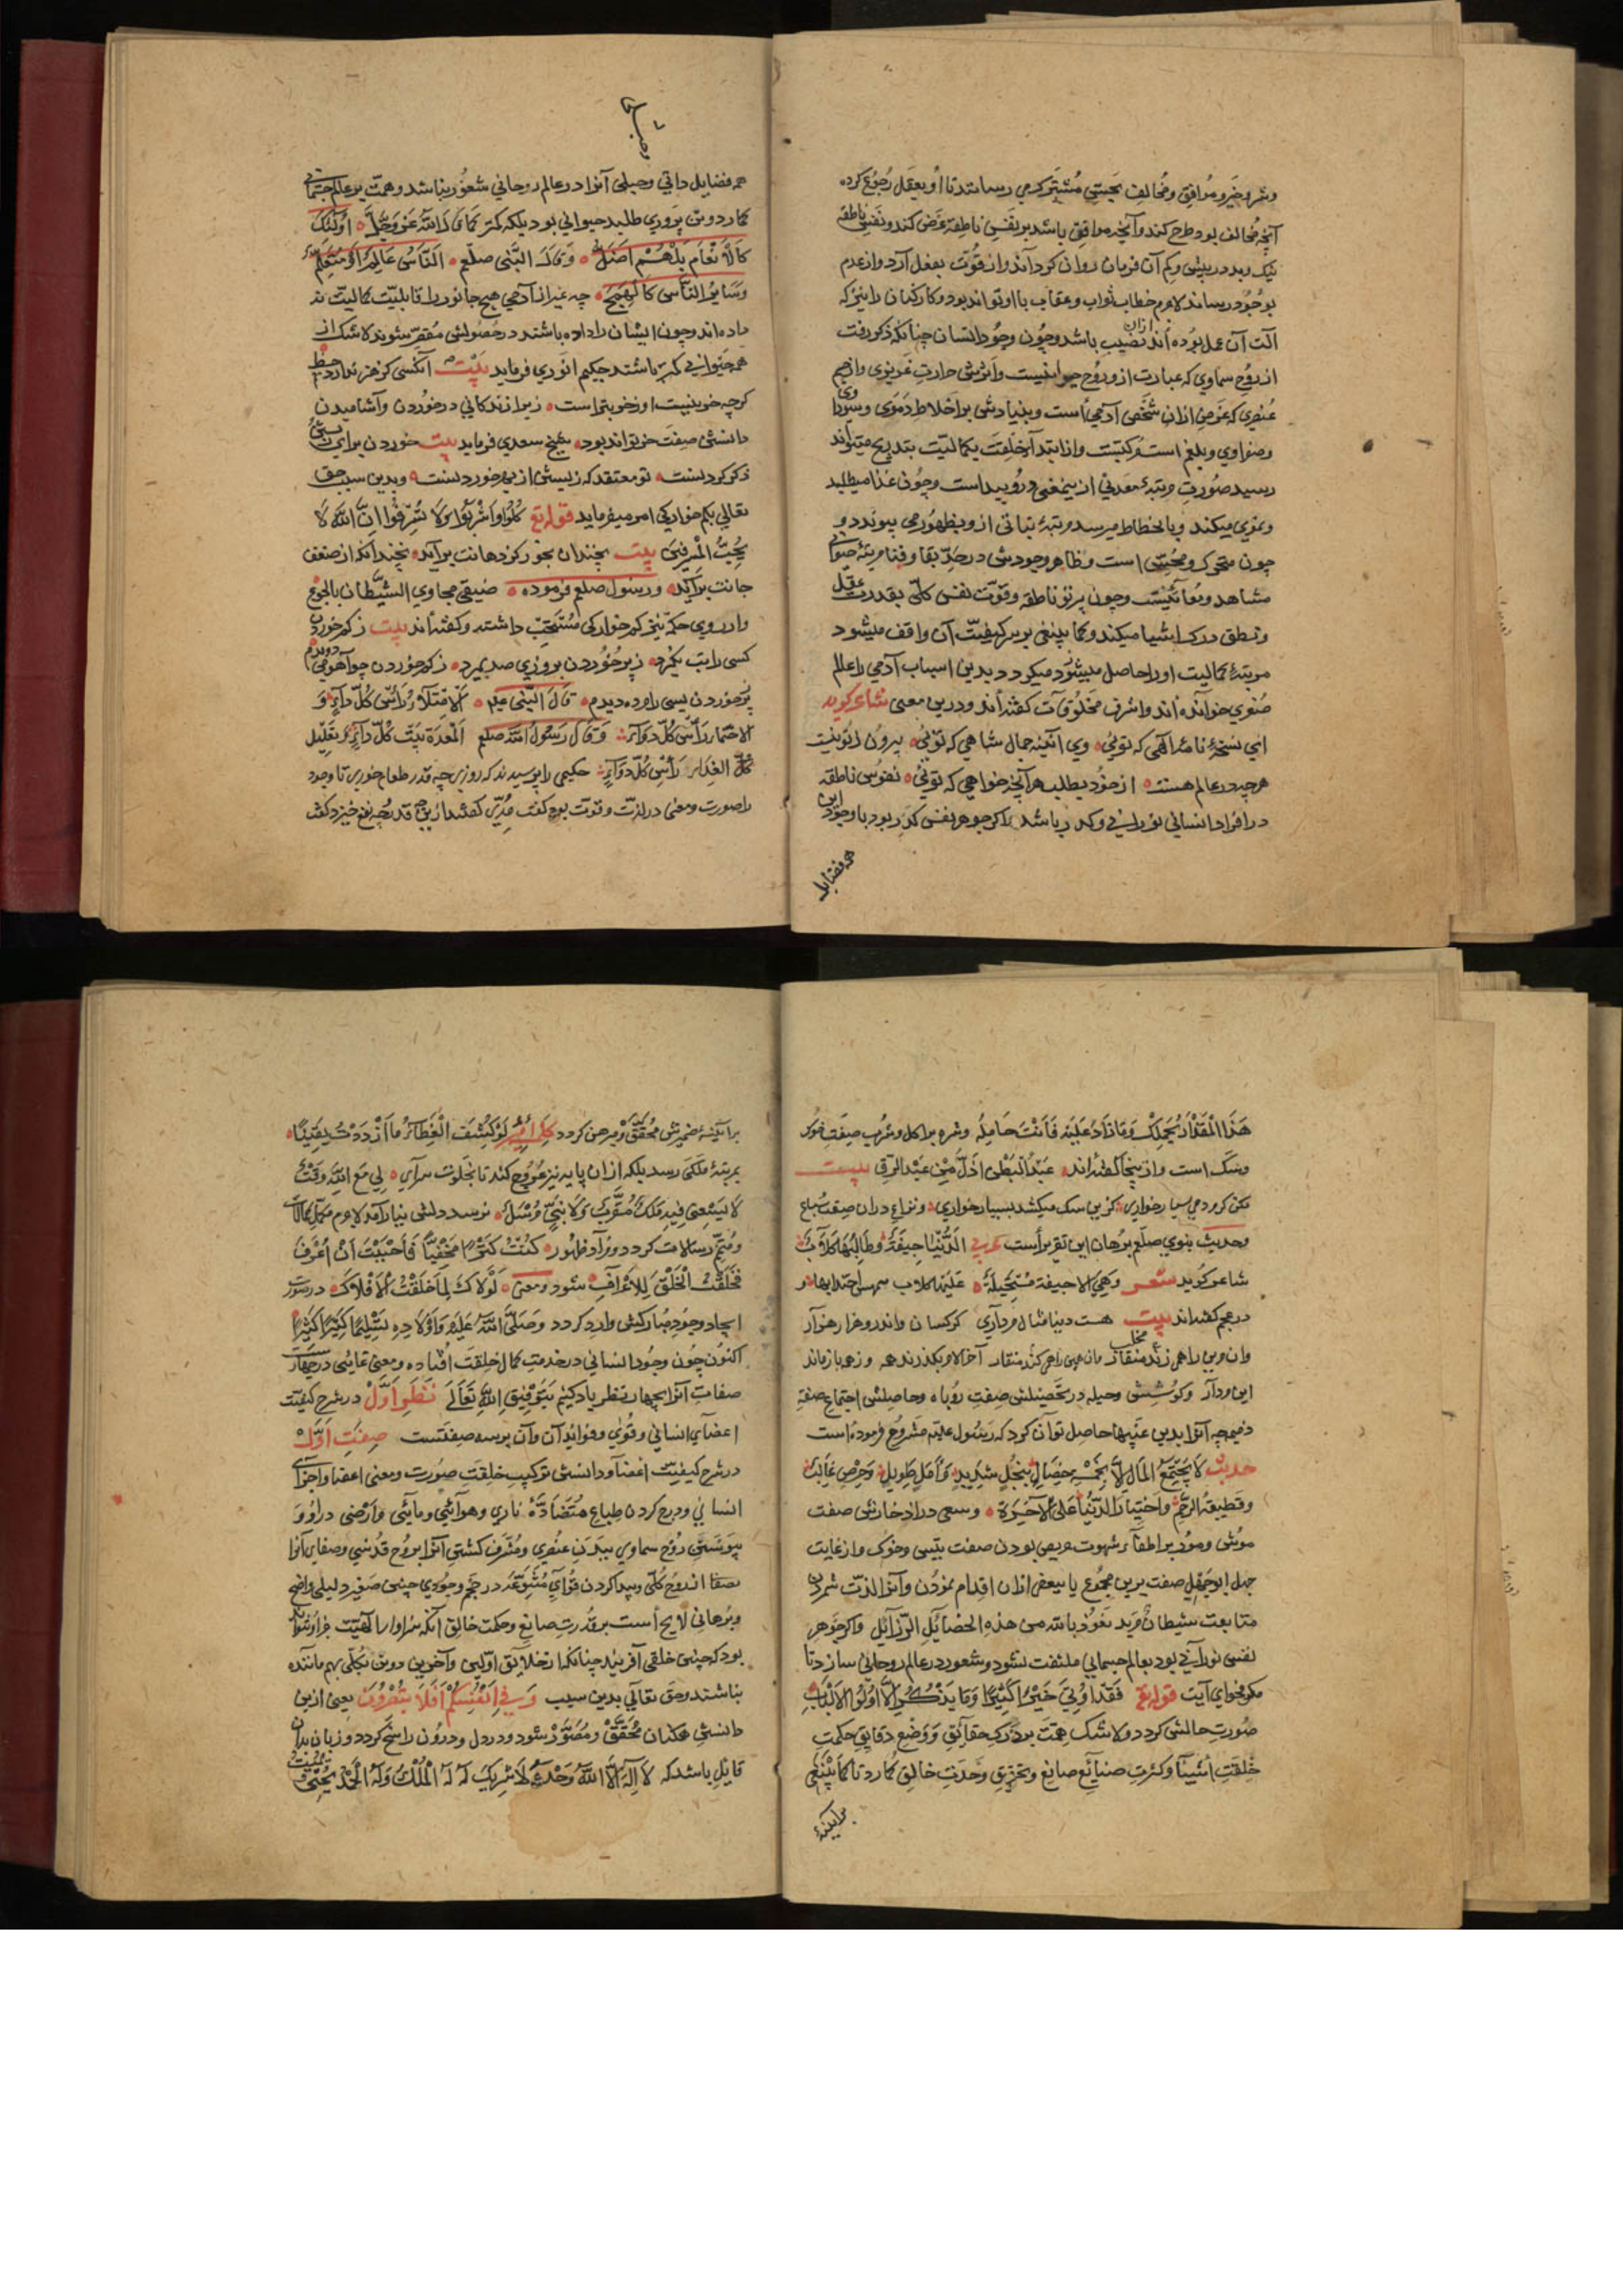 و شر و خیر و مُوافِق و مُخالِف بَحِسّی مُشتَرِک می رسانند تا او بعقل رُجوع کرده
آنچه مُخالف بود طرح کند و آنچه موافق باشد بر نَفسِ ناطِقه عَرض کند و نَفسِ ناطقه
نیک و بد در بیش و کم آن فرمان روان کرداند و از قُوّت بفعل آرد و از عدم
بوُجُود رساند لاجرم خطاب ثواب و عقاب با او تواند بود و کارکنان را نیز که
آلت آن عمل بوُده اند ازان نَصیب باشد و چون وجُود انسان چنانکه ذکر رفت
از رُوحِ سماوی که عبارت از و رُوحِ حیوانیست و اثرش حرارت غریزی و از جسم
عُنصری که غَرض ازان شَخصِ آدمی است و بنیادش بر اخلاط دَمَوی و سودا وی
و صفراوی و بلغم است مُرکبّست و از ابتدا خِلقَت بکمالیّت بتدریج میتواند
رسید صُورتِ مرتبهٔ معدنی ازین معنی درو پیداست و چون غذا میطلبد
و نموی میکند و بانحطاط میرسد مرتبهٔ نباتی ازو بظهُور می پیوندد و
چون متحرک و محسّس است و ظاهر وجودش در حدّ بقا و فنا مرتبهٔ حیوانی
مشاهد و مُعاینَست و چون پرتو ناطقه و قوّت نفس کلّی بقدرت عقل
و نطق درک اشیا میکند و کما ینبغی بر سر کیفیّت آن واقف میشود
مرتبهٔ کمالیت او را حاصل میشود میکردد بدین اسباب آدمی را عالم
صُغری خوانده اند و اشرف مَخلُوقات کفته اند و درین معنی شاعر کوید
ای نسخهٔ نامهٔ الهی که توئی وی آئینهٔ جمال شاهی که توئی بیرون ز تو نیست
هرچه در عالم هست از خود بطلب هر آنچه خواهی که توئی نفوس ناطقه
در افراد انسانی نورانی و کدر باشد اکر جوهر نفس کدر بود با وجود این
همه فضایل
همه فضایل ذاتی و حیلی آنرا در عالم روحانی شعور نباشد و همّت بر عالم جسمانی
کمارد و تن پَروری طلبد حیوانی بود بلکه کمتر کَما قالَ اللهُ عَزَّ وَجَلَّ اُولئِکَ
کَالاَنعامِ بَل هُم اَضَلُّ وَ قالَ النَّبی صلعم اَلنّاسُ عالِمٌ اَو مُتَعَلِّمٌ
وَ سَایِرُ النّاسِ کَالهَمَجِ چه غیر از آدمی هیچ جانور را قابلیّت کمالیّت نه
داده اند و چون ایشان را داده باشند در حصولش مُقصِّر شوند لاشک از
همه حیوانی کمتر باشند حکیم انوری فرماید بیت آنکس که هنر ندارد حظ
کرچه خر نیست او ز خر بتر است زیرا زندکانی در خوردن و آشامیدن
دانستن صِفَت خر تواند بود شیخ سعدی فرماید بیت خوردن برای زیستن
ذکر کردنست تو معتقد که زیستن از بهر خوردنست و بدین سبب حق
تعالی بکم خوارکی امر میفرماید قوله تع کُلُوا وَاشرَبُوا وَلا تُسرِفُوا اِنَّ اللهَ لا
یُحِبُّ المُسرِفینَ بیت نچندان بخور کز دهانت برآید نچندانکه از ضعف
جانت برآید و رسول صلعم فرموده ضیقی مجاوی الشیطان بالجوع
و از روی حکمة نیز کم خوارکی مُستَحَبّ داشته و کفته اند بیت ز کم خوردن
کسی را تب نکیرد ز پر خُوردن بروزی صد بمیرد ز کم خوردن چو آهو می دویدم
ز پر خوردن بسی راه ره دیدم قالَ النَّبی علیه اَلاِمتِلاءُ رَأسُ کُلِّ داءٍ وَ
الاحتماء رَأسُ کُلِّ دَواءٍ وَ قالَ رَسُولُ اللهِ صلعم اَلمَعِدَةُ بَیتُ کُلِّ داءٍ وَ تَقلیلُ
کُلِّ الغِذاءِ رَأسُ کُلِّ دَواءٍ حکیمی را پرسیدند که روزی چه قدر طعام خوری تا وجود
را صورت و معنی در لذّت و قوّت بود کفت صد درم کفتند ازین قدر چه نفع خیزد کفت
هَذَا المِقدارُ یَحمِلُکَ وَ ما زادَ عَلَیهِ فَاَنتَ حامِلُهُ و شره بر اکل و شرب صِفَت خوک
و سک است و ازینجا کفته اند عَبدُ البَطنِ اَذَلُّ مِن عَبدِ الرِّقِ بیت
مکن کرد می بسیار خواری کزین سک میکشد بسیار خواری و نزاع دران صِفَت سباع
و حدیث نبوی صلّعم بُرهان این تقریر است عربی اَلدُّنیا جیفَةٌ وَ طالِبُها کِلابٌ
شاعر کوید شعر وَ هِیَ اِلّا جیفَة مُستَحیلَةٌ عَلَیها کِلاب همّهن اجتذابها و
در عجم کفته اند بیت هست دنیا مثال مرداری کرکسان واندرو هزار هزار
وان مرین را همی زند مخلب وان مر این را همی کند منقار آخر الامر بکذرند همه وز همه باز ماند
این مردار و کوشِش و حیله در تحصیلش صِفتِ رُوباه و حاصلش اجتماع صفةِ
ذمیمه چه آنرا بدین عَیبها حاصل توان کرد که رَسُول علیه مَشروع فرموده است
حدیث لا یَجتَمِعُ المالُ اِلّا بِخَمسِ خِصالٍ بِبُخلٍ شَدیدٍ وَ اَمَلٍ طَویلٍ وَ حِرصٍ غالِبٍ
وَ قَطیعَةِ الرَّحِمِ وَ اختِیارِ الدُّنیا عَلَی الآخِرَةِ و سعی در ادخارش صفت
موُش و موُر بر اطفاء شهوت حریص بودن صفت بتیسی و خوک و از غایت
جهل ابو جهل صفت برین مجموع یا ببعض ازان اقدام نمودن و آنرا لذّت شمردن
متابعت شیطان مَرید نَعُوذ بالله من هذه الخصائل الرّزائل و اکر جوهر
نفس نورانی بود بعالم جسمانی ملتفت نشود و شعور در عالم روحانی سازد تا
مکر فحوای آیت قوله تع فَقَد اُوتِیَ خَیراً کَثیراً وَ ما یَذَّکَّرُ اِلّا اُولُوا الاَلبابِ
صُورتِ حالش کردد و لاشک همّت بدرکِ حَقائق وَ وَضعِ دَقایِق حکمتِ
خِلقَتِ اشیا و کثرتِ صنائع صانِع و تحیّری وحدَتِ خالق کُمارد تا کَما یَنبَغی
بر آیینهٔ
بر آیینهٔ ضمیرش مُحَقَّق و مُبرهن کردد لَو کُشِفَ الغِطاءُ ما ازدَدتُ یَقیناً
بمرتبهٔ ملکی رسد بلکه ازان پایه نیز عُروج کند تا بخلوت سرای لی مَعَ اللهِ وَقتٌ
لا یَسَعُنی فیهِ مَلَکٌ مُقَرَّبٌ وَ لا نَبِیٌّ مُرسَلٌ برسد دلش بنیاز آمد لاجرم مکمل کمالات
و مُتمّم رسالات کردد و مراد ظهور کُنتُ کَنزاً مَخفِیّاً فَاَحبَبتُ اَن اُعرَفَ
فَخَلَقتُ الخَلقَ لِلاَعرافِ شود و معنی لَولاکَ لَما خَلَقتُ الاَفلاکَ در صورت
ایجاد وجُودِ مبارکش وارد کردد وَ صَلَّی اللهُ عَلَیهِ وَ اَولادِهِ تَسلیماً کثیراً کثیراً
اکنون چون وجود انسانی در خدمتِ کمال خلقت افتاده و معنی غایتش در جهارست
صفات آنرا بچهار نظر یاد کنیم بِتَوفیقِ اللهِ تَعالی نَظَرِ اَوَّل در شرح کیفیّت
اعضای انسانی و قُوای و فوائد آن و آن برسه صفتست صِفَتِ اَوَّل
در شرح کیفیّت اعضا و دانستن ترکیب خلقت صورت و معنی اعضا و اجزای
انسانی و درج کردن طِباعِ مُتَضادَّه ناری و هوائی و مائی و ارضی در او و
پیوَستنِ رُوحِ سماوی ببدنِ عنصری و مُشرّف کشتن آنرا برُوح قدسی و صفای آنرا
بصفا از رُوح کلی و پیدا کردن قُوای مُتَنَوّعَه در حجم وجودی چنین صَغیر دلیلی واضح
و بُرهانی لایح است بر قُدرتِ صانِع و حکمت خالق آنکه سزاوار الهیّت جز او نتواند
بود که چنین خلقی آفریند چنانکه از خلائق اوّلین و آخرین دو تن بکلّی بهم ماننده
نباشند و حق تعالی بدین سبب وَ فی اَنفُسِکُم اَفَلا تُبصِرُونَ یعنی ازین
دانستن همکنان مُحَقَّق و مُصَوَّر شود و در دل و درُون راسخ کردد و زبان بدان
قایل باشد که لا اِلهَ اِلّا اللهُ وَحدَهُ لا شَریکَ لَهُ لَهُ المُلکُ وَلَهُ الحَمدُ یُحیی وَ یُمیتُ